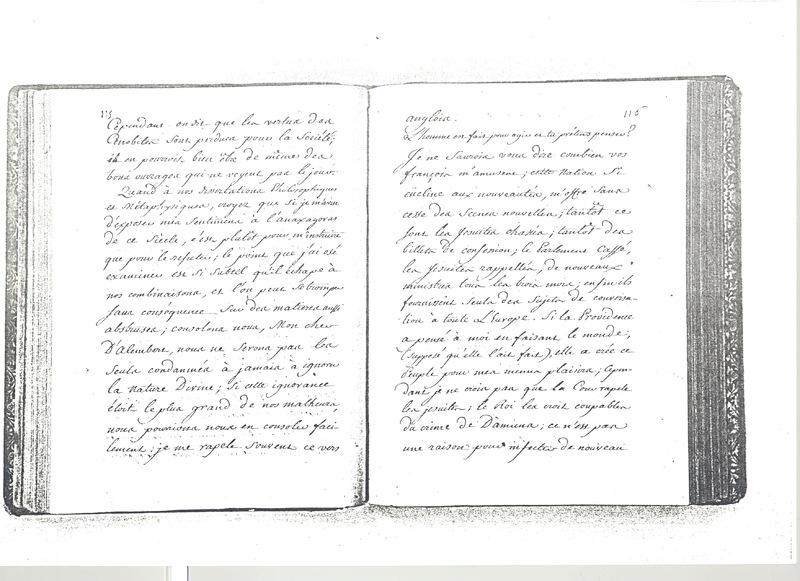 115
Cependant on dit que les vertus des
Cénobites sont perdues pour la Société;
il en pourroit bien être de même des
bons ouvrages qui ne voyent pas le jour.
Quand à nos dissertations Philosophiques
et Métaphysiques, croyez que si je m'avise
d'exposer mes sentimens à l'anaxagoras
de ce Siècle, c'est plutôt pour m'instruire
que pour le refuter; le point que j'ai osé
examiner est si Subtil qu'il échape à
nos combinaisons, et l'on peut se tromper
sans conséquence Sur des matieres aussi
abstruses; consolons nous, Mon cher
D'Alembert, nous ne Serons pas les
Seuls condamnés à jamais à ignorer
la nature Divine; Si cette ignorance
étoit le plus grand de nos malheurs,
nous pourrions nous en consoler faci-
lement; je me rapele Souvent ce vers
116
anglois.
L'homme est fait pour agir et tu prétens penser?
Je ne Saurois vous dire combien vos
françois m'amusent; cette nation Si
encline aux nouveautés, m'offre Sans
cesse des Scenes nouvelles; tantôt ce
Sont les Jésuites chassés; tantôt des
billets de confession; le Parlement Cassé,
les Jesuites rappellés, de nouveaux
ministres tous les trois mois; enfin ils
fournissent Seuls des Sujets de conversa-
tion à toute L'Europe. Si la Providence
a pensé à moi en faisant le monde,
(supposé qu'elle l'ait fait), elle a créé ce
Peuple pour mes menus plaisirs; Cepen-
dant je ne crois pas que la Cour rapele
les jesuites; le Roi les croit coupables
du crime de Damiens; ce n'est pas
une raison pour infecter de nouveau